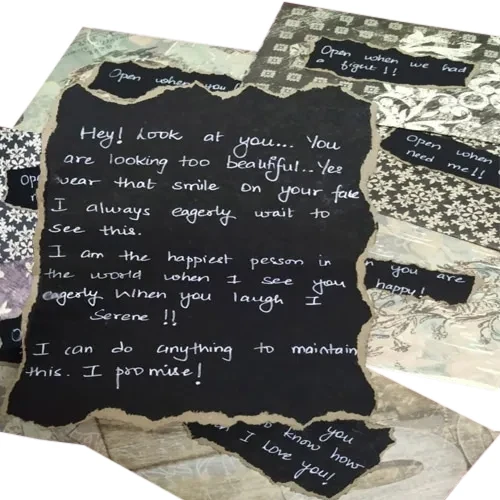 Open when we had
a fight!!
Open when you
Open when
need me!!
Hey! Look at you... You
are looking too beautiful.. Yes
wear that smile on your face
I always eagerly wait to
see this.
I am the happiest person in
the world when I see you
eagerly When you laugh I
Serene !!
I can do anything to maintain
this. I promise!
you are
happy!
you
to know how
I love you!